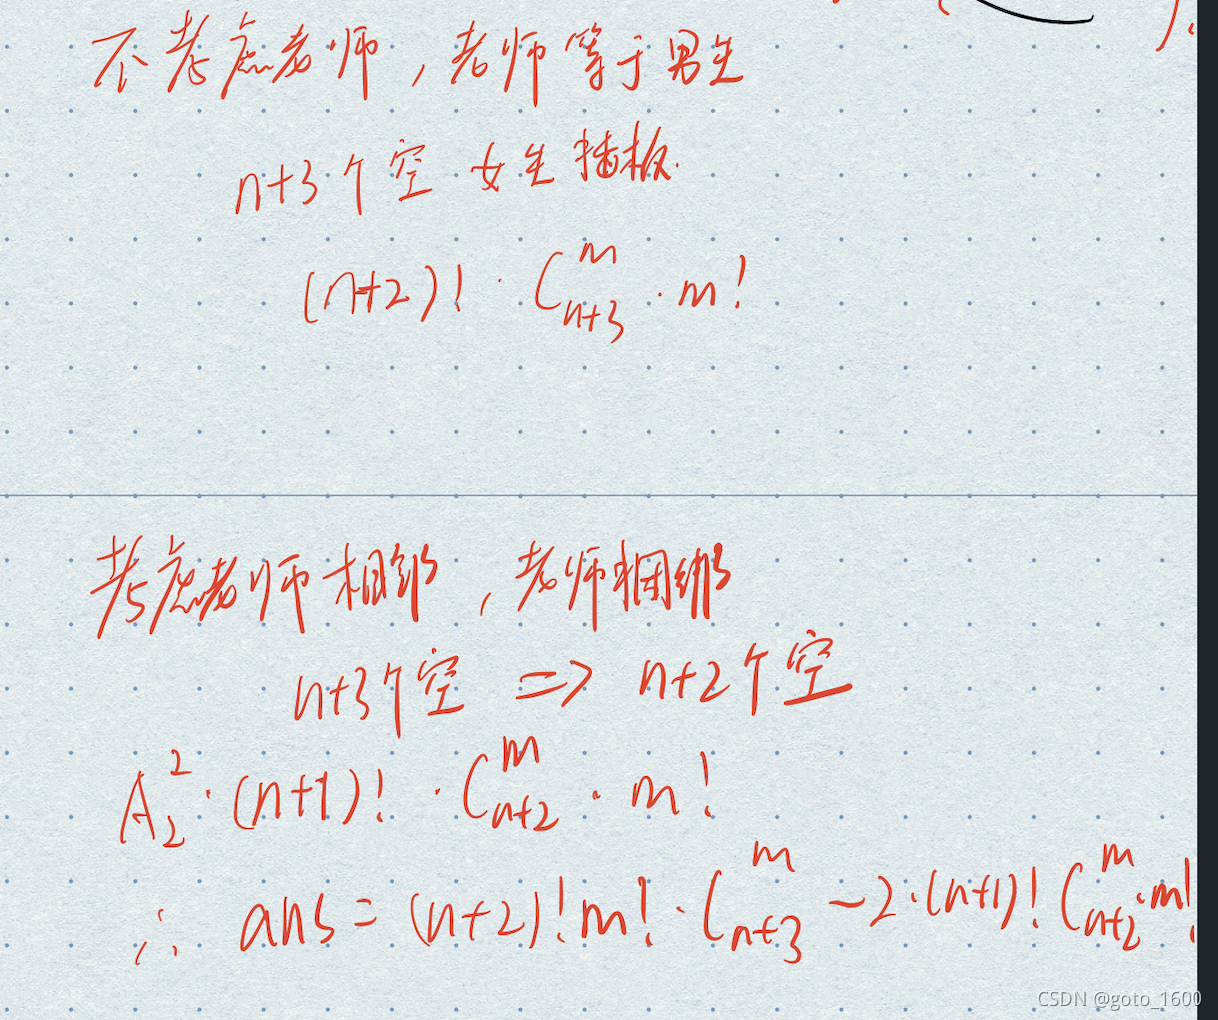 不考虑老师，老师等于男生
n+3个空 女生插板.
(n+2)! · C_{n+3}^{m} · m!
考虑老师相邻，老师捆绑
n+3个空 => n+2个空
A_2^2 · (n+1)! · C_{n+2}^{m} · m!
∴ ans = (n+2)! m! · C_{n+3}^{m} - 2·(n+1)! C_{n+2}^{m}·m!
CSDN @goto_1600